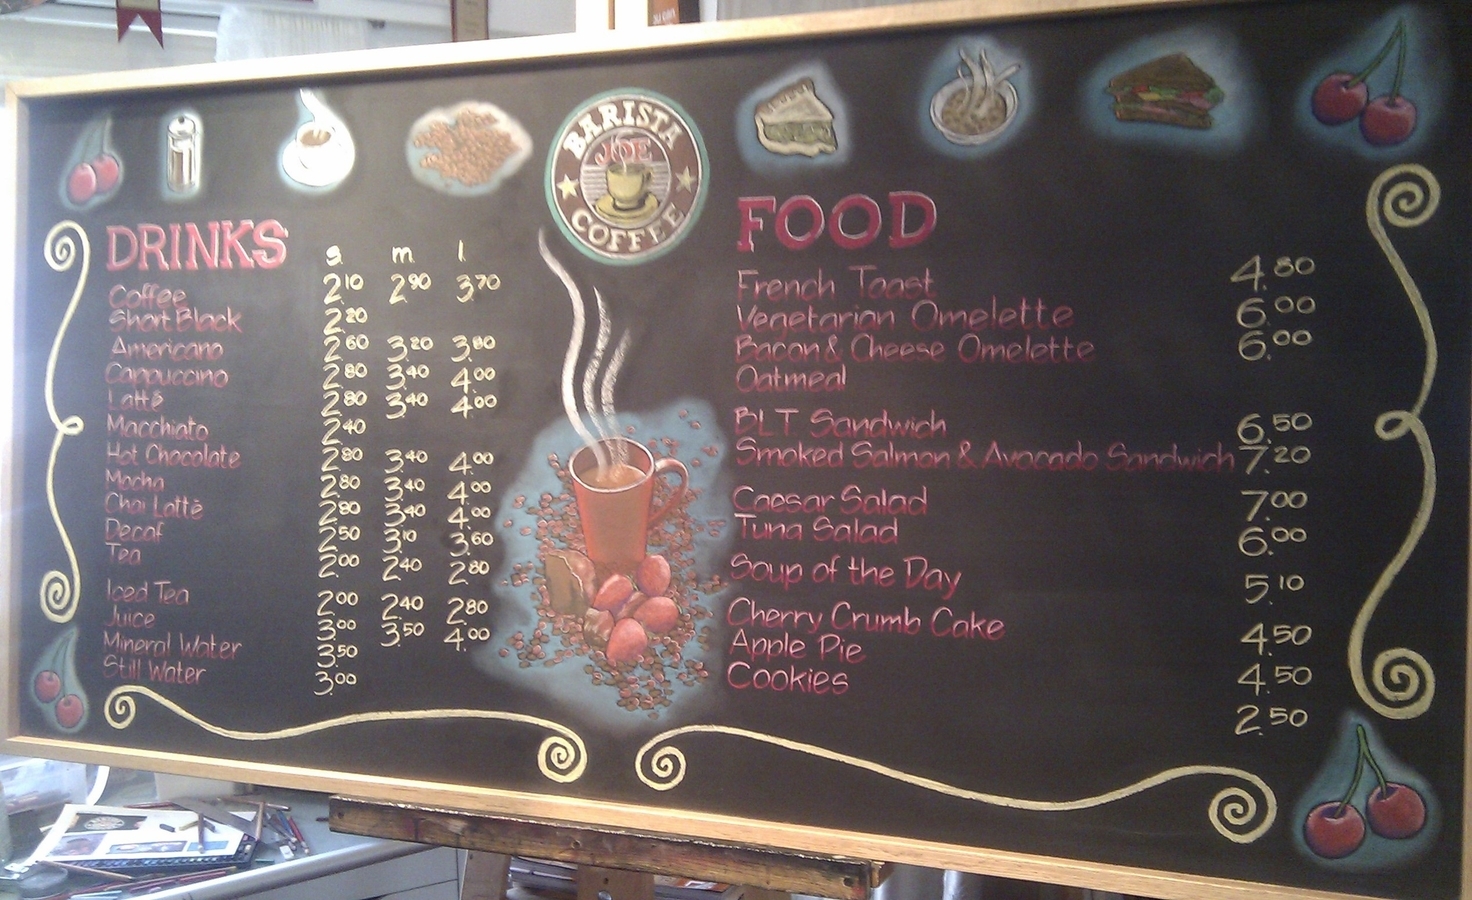 BARISTA
JOE
COFFEE
DRINKS s. m. l.
Coffee 2.10 2.90 3.70
Short Black 2.20
Americano 2.60 3.20 3.80
Cappuccino 2.80 3.40 4.00
Latté 2.80 3.40 4.00
Macchiato 2.40
Hot Chocolate 2.80 3.40 4.00
Mocha 2.80 3.40 4.00
Chai Latté 2.80 3.40 4.00
Decaf 2.50 3.10 3.60
Tea 2.00 2.40 2.80
Iced Tea 2.00 2.40 2.80
Juice 3.00 3.50 4.00
Mineral Water 3.50
Still Water 3.00
FOOD
French Toast 4.80
Vegetarian Omelette 6.00
Bacon & Cheese Omelette 6.00
Oatmeal
BLT Sandwich 6.50
Smoked Salmon & Avocado Sandwich 7.20
Caesar Salad 7.00
Tuna Salad 6.00
Soup of the Day 5.10
Cherry Crumb Cake 4.50
Apple Pie 4.50
Cookies 2.50